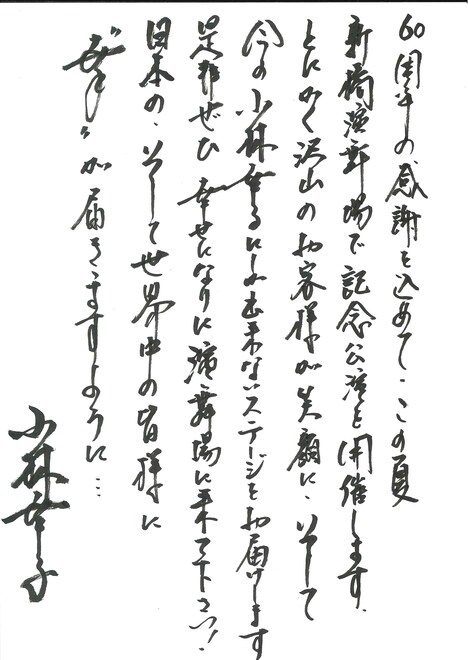 60周年の感謝を込めて、この夏
新橋演舞場で記念公演を開催します。
とにかく沢山のお客様が笑顔に、そして
今の小林幸子にしか出来ないステージをお届けします
是非ぜひ 幸せになりに演舞場に来て下さい！
日本の、そして世界中の皆様に
"幸" が届きますように…
小林幸子